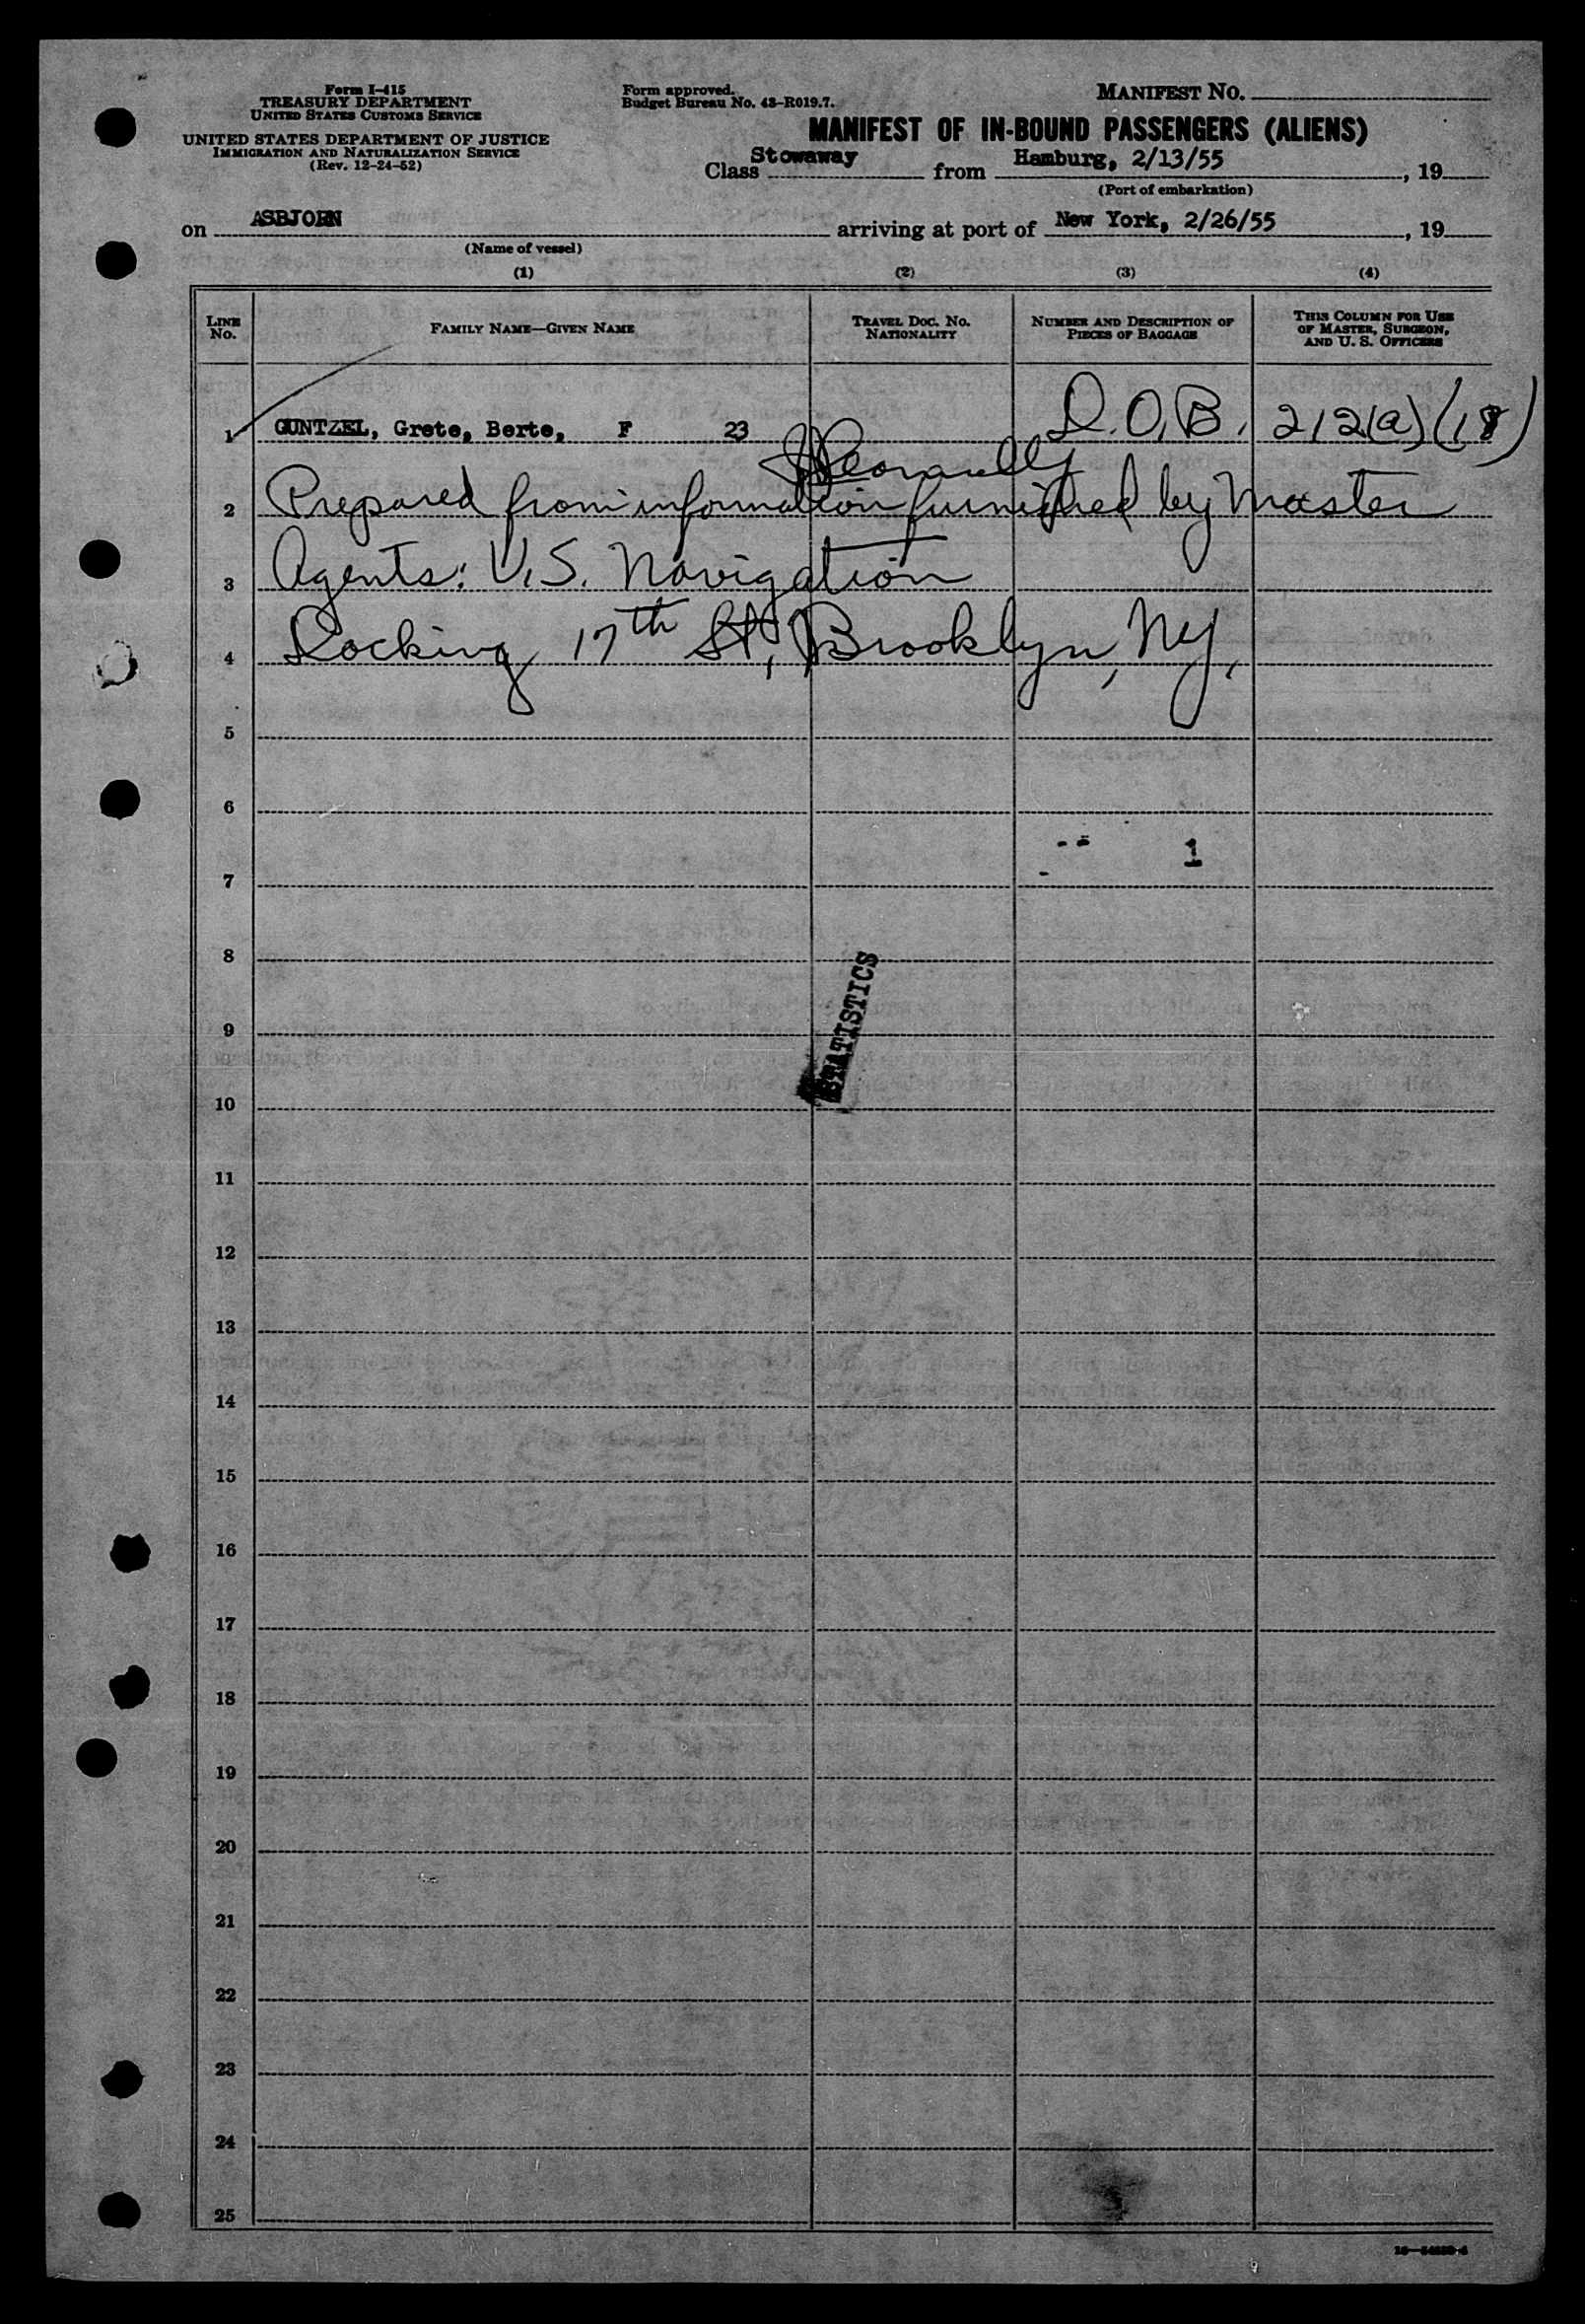 Form I-415
TREASURY DEPARTMENT
UNITED STATES CUSTOMS SERVICE
UNITED STATES DEPARTMENT OF JUSTICE
IMMIGRATION AND NATURALIZATION SERVICE
(Rev. 12-24-52)
Form approved.
Budget Bureau No. 43-R019.7.
MANIFEST NO.
MANIFEST OF IN-BOUND PASSENGERS (ALIENS)
Class Stowaway from Hamburg, 2/13/55, 19
(Port of embarkation)
on ASBJORN arriving at port of New York, 2/26/55, 19
(Name of vessel)
(1) (2) (3) (4)
LINE No. FAMILY NAME—GIVEN NAME TRAVEL DOC. NO. NATIONALITY NUMBER AND DESCRIPTION OF PIECES OF BAGGAGE THIS COLUMN FOR USE OF MASTER, SURGEON, AND U. S. OFFICERS
1 GUNTZEL, Grete, Berte, F 23 D.O.B. 212(a)(18)
2 Prepared from information furnished by Master
3 Agents: U.S. Navigation
4 Docking 17th St, Brooklyn, NY,
5
6
1
7
8
STATISTICS
9
10
11
12
13
14
15
16
17
18
19
20
21
22
23
24
25